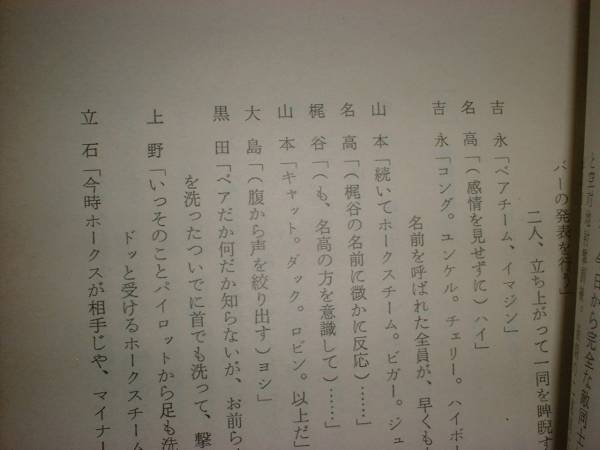 今日から完全な敵同士
バーの発表を行う」
二人、立ち上がって一同を睥睨す
吉永「ベアチーム、イマジン」
名高「(感情を見せずに)ハイ」
吉永「コング。ユンケル。チェリー。ハイボー
名前を呼ばれた全員が、早くも
山本「続いてホークスチーム。ビガー。ジュ
名高「(梶谷の名前に微かに反応)……」
梶谷「(も、名高の方を意識して)……」
山本「キャット。ダック。ロビン。以上だ」
大島「(腹から声を絞り出す)ヨシ」
黒田「ベアだか何だか知らないが、お前ら
を洗ったついでに首でも洗って、撃
上野「いっそのことパイロットから足も洗
ドッと受けるホークスチーム
立石「今時ホークスが相手じゃ、マイナー